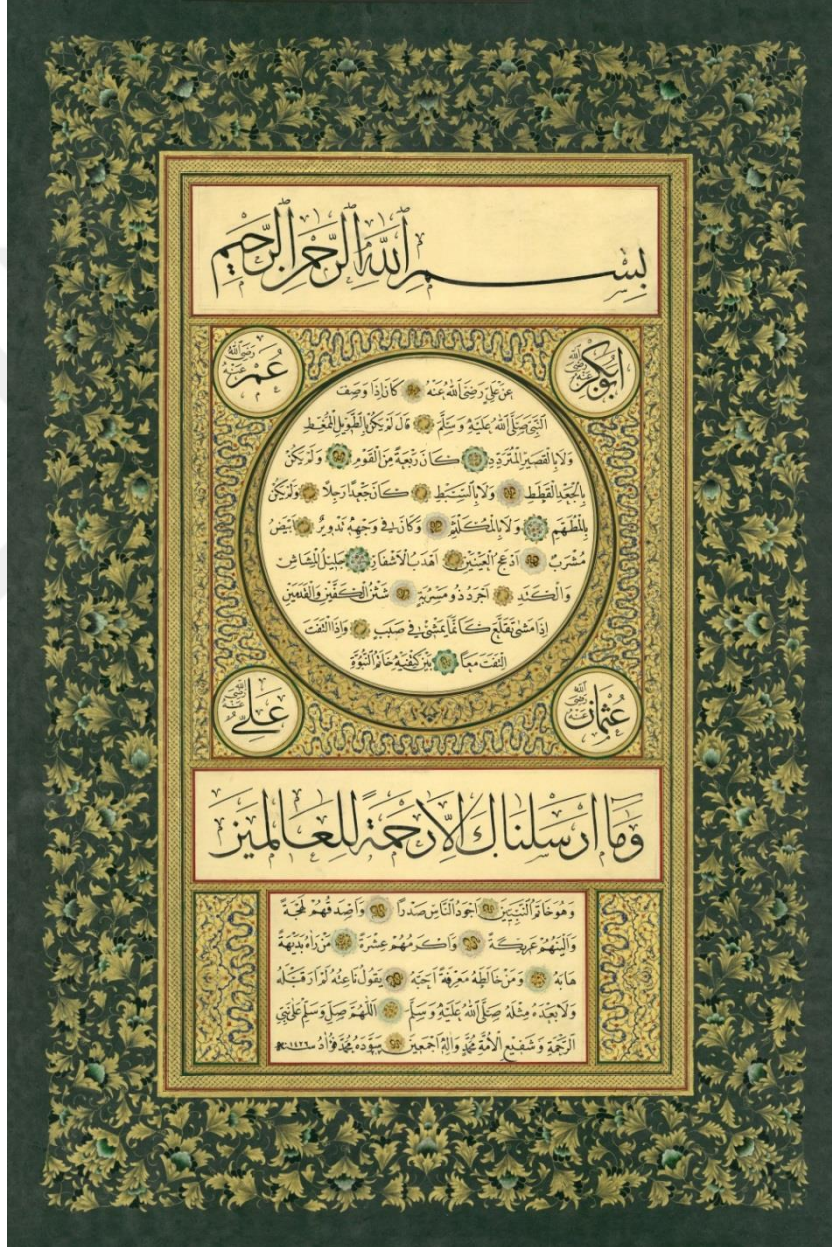 بِسْمِ اللّٰهِ الرَّحْمٰنِ الرَّحِيمِ
ابوبكر رضي الله عنه
عمر رضي الله عنه
عن علي رضي الله عنه كان اذا وصف
النبي صلى الله عليه وسلم قال لم يكن بالطويل الممغط
ولا بالقصير المتردد كان ربعة من القوم ولم يكن
بالجعد القطط ولا بالسبط كان جعدا رجلا ولم يكن
بالمطهم ولا بالمكلثم وكان في وجهه تدوير ابيض
مشرب ادعج العينين اهدب الاشفار جليل المشاش
والكتد اجرد ذو مسربة شثن الكفين والقدمين
اذا مشى تقلع كانما يمشي في صبب واذا التفت
التفت معا بين كتفيه خاتم النبوة
عثمان رضي الله عنه
علي رضي الله عنه
وما ارسلناك الا رحمة للعالمين
وهو خاتم النبيين اجود الناس صدرا واصدقهم لهجة
والينهم عريكة واكرمهم عشرة من راه بديهة
هابه ومن خالطه معرفة احبه يقول ناعته لم ار قبله
ولا بعده مثله صلى الله عليه وسلم اللهم صل وسلم على نبي
الرحمة وشفيع الامة محمد واله اجمعين سوده محمد فؤاد سنه ١٤٢٦